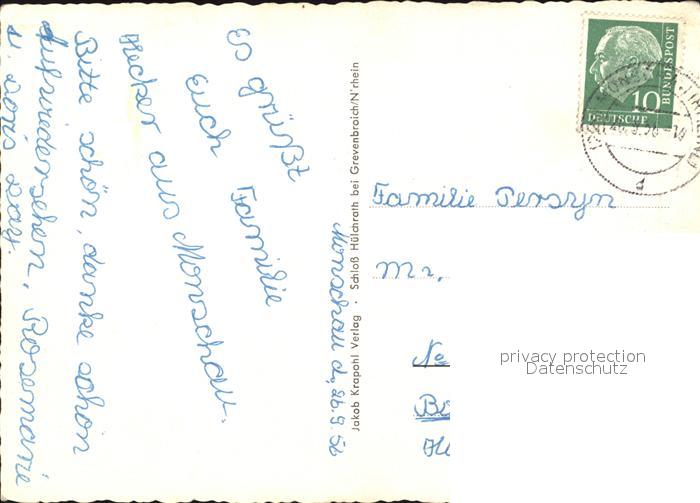 Monschau d. 26.9.56
Es grüßt
Euch Familie
Hecker aus Monschau.
Bitte schön, danke schön
Aufwiedersehen, Rosemarie
u. Doris
Jakob Krapohl Verlag · Schloß Hülchrath bei Grevenbroich/N'rhein
10
DEUTSCHE
BUNDESPOST
Familie Persyn
Mr.
privacy protection
Datenschutz